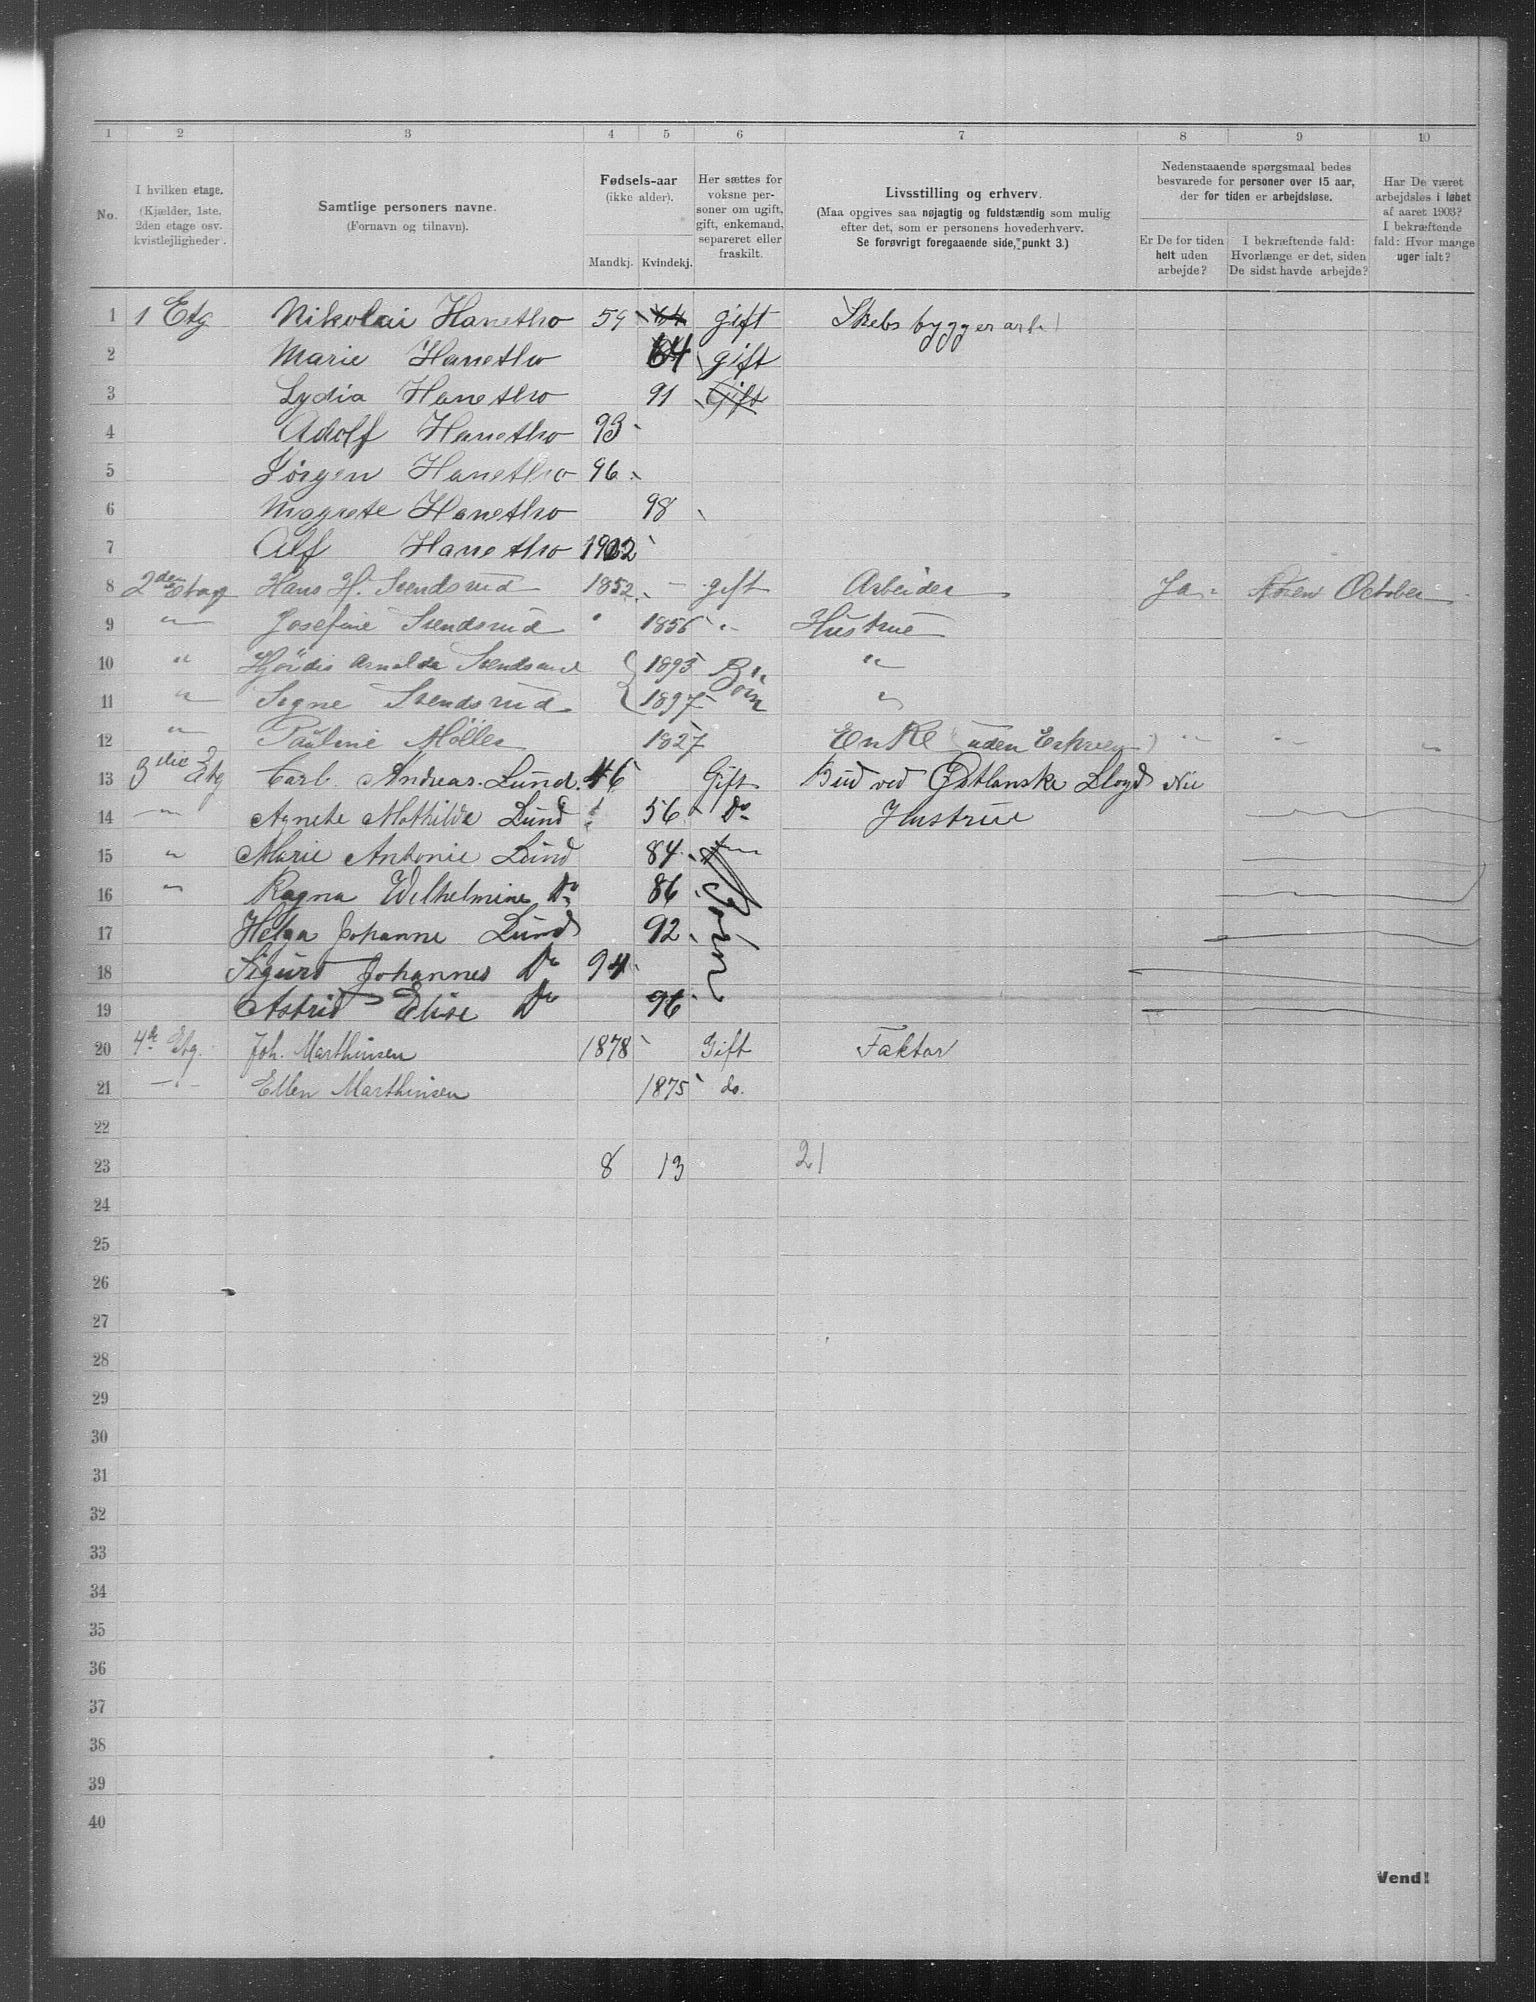 1 2 3 4 5 6 7 8 9 10
No.
I hvilken etage.
(Kjælder, 1ste, 2den etage osv. kvistlejligheder).
Samtlige personers navne.
(Fornavn og tilnavn).
Fødsels-aar
(ikke alder).
Mandkj. Kvindekj.
Her sættes for voksne personer om ugift, gift, enkemand, separeret eller fraskilt.
Livsstilling og erhverv.
(Maa opgives saa nøjagtig og fuldstændig som mulig
efter det, som er personens hovederhverv.
Se forøvrigt foregaaende side, punkt 3.)
Nedenstaaende spørgsmaal bedes
besvarede for personer over 15 aar,
der for tiden er arbejdsløse.
Er De for tiden helt uden arbejde?
I bekræftende fald: Hvorlænge er det, siden De sidst havde arbejde?
Har De været arbejdsløs i løbet af aaret 1903? I bekræftende fald: Hvor mange uger ialt?
1 1 Etg Nikolai Hanetho 59 64 gift Skebsbyggerarb
2 Marie Hanetho 64 gift
3 Lydia Hanetho 91 Gift
4 Adolf Hanetho 93
5 Jørgen Hanetho 96
6 Magrete Hanetho 98
7 Alf Hanetho 1902
8 2den Etage Hans H. Svendsrud 1852 - gift Arbeider Ja October
9 " Josefine Svendsrud " 1856 " Hustrue
10 " Hjørdis Arnalda Svendsrud 1893 Børn "
11 " Signe Svendsrud 1897 "
12 " Pauline Møller 1827 Enke (uden Erhverv) " " "
13 3die Etg Carl Andreas Lund. 46 Gift Bud ved Østlanske Lloyd Nei
14 " Agnete Mathilde Lund 56 Do Hustrue
15 " Marie Antonie Lund 84
16 " Ragna Wilhelmine Do 86 Børn
17 Helga Johanne Lund 92
18 Sigurd Johannes Do 94
19 Astrid Elise Do 96
20 4de Etg. Joh. Marthinsen 1878 Gift Faktor
21 -"- Ellen Marthinsen 1875 do.
22
23 8 13 21
24
25
26
27
28
29
30
31
32
33
34
35
36
37
38
39
40
Vend!